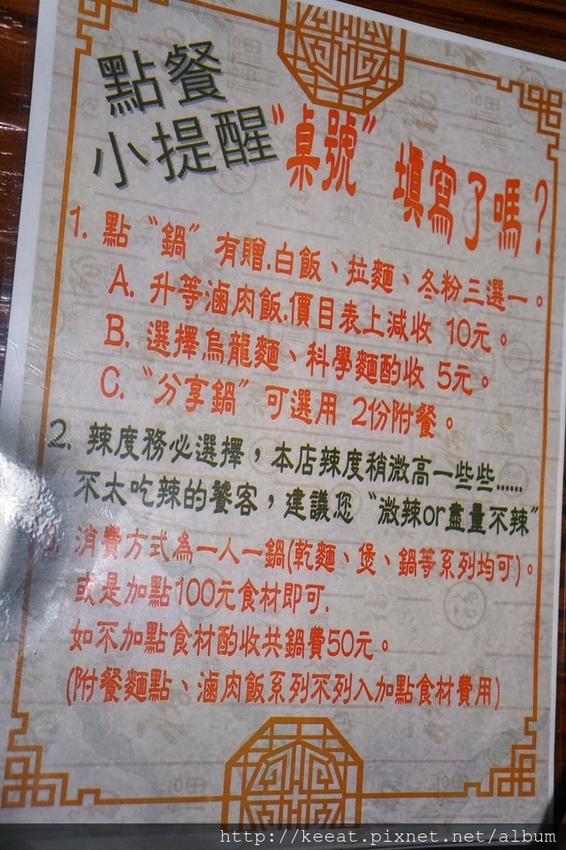 點餐
小提醒"桌號" 填寫了嗎？
1. 點〝鍋〞有贈.白飯、拉麵、冬粉三選一。
A. 升等滷肉飯.價目表上減收 10元。
B. 選擇烏龍麵、科學麵酌收 5元。
C.〝分享鍋〞可選用 2份附餐。
2. 辣度務必選擇，本店辣度稍微高一些些......
不太吃辣的饕客，建議您〝微辣or盡量不辣〞
消費方式為一人一鍋(乾麵、煲、鍋等系列均可)。
或是加點100元食材即可.
如不加點食材酌收共鍋費50元。
(附餐麵點、滷肉飯系列不列入加點食材費用)
http://keeat.pixnet.net/album